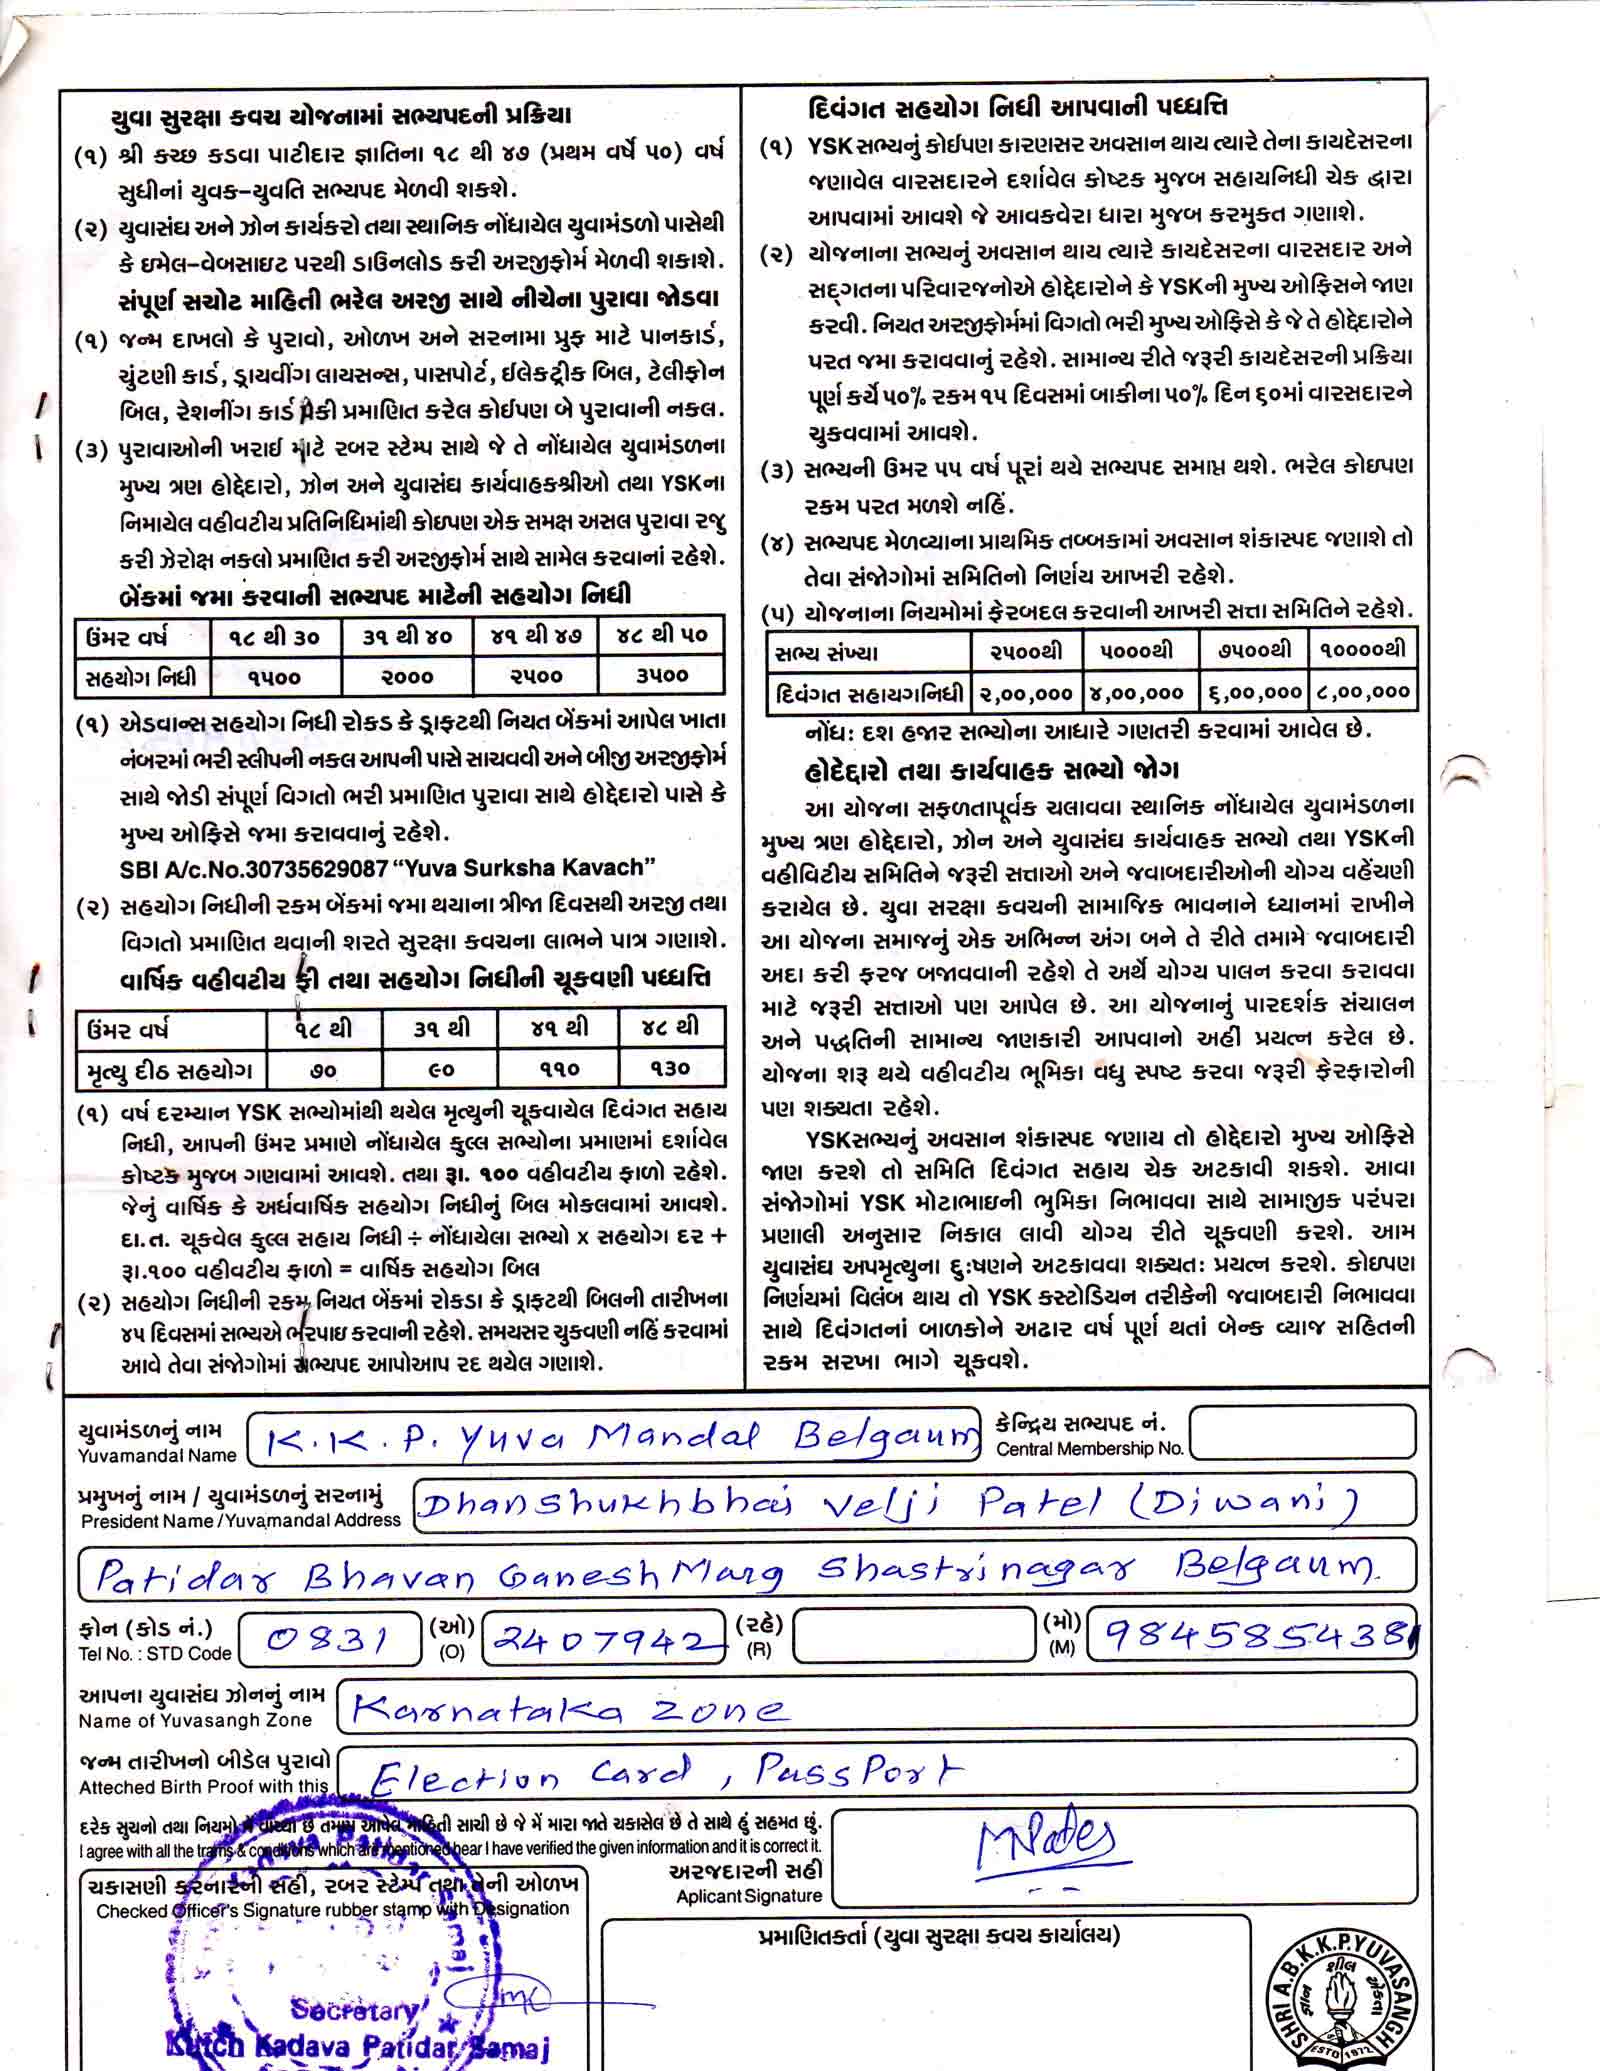 યુવા સુરક્ષા કવચ યોજનામાં સભ્યપદની પ્રક્રિયા
(૧) શ્રી કચ્છ કડવા પાટીદાર જ્ઞાતિના ૧૮ થી ૪૭ (પ્રથમ વર્ષે ૫૦) વર્ષ
સુધીનાં યુવક-યુવતિ સભ્યપદ મેળવી શકશે.
(૨) યુવાસંઘ અને ઝોન કાર્યકરો તથા સ્થાનિક નોંધાયેલ યુવામંડળો પાસેથી
કે ઇમેલ-વેબસાઇટ પરથી ડાઉનલોડ કરી અરજીફોર્મ મેળવી શકાશે.
સંપૂર્ણ સચોટ માહિતી ભરેલ અરજી સાથે નીચેના પુરાવા જોડવા
(૧) જન્મ દાખલો કે પુરાવો, ઓળખ અને સરનામા પ્રુફ માટે પાનકાર્ડ,
ચુંટણી કાર્ડ, ડ્રાયવીંગ લાયસન્સ, પાસપોર્ટ, ઈલેક્ટ્રીક બિલ, ટેલીફોન
બિલ, રેશનીંગ કાર્ડ પૈકી પ્રમાણિત કરેલ કોઈપણ બે પુરાવાની નકલ.
(૩) પુરાવાઓની ખરાઈ માટે રબર સ્ટેમ્પ સાથે જે તે નોંધાયેલ યુવામંડળના
મુખ્ય ત્રણ હોદ્દેદારો, ઝોન અને યુવાસંઘ કાર્યવાહકશ્રીઓ તથા YSKના
નિમાયેલ વહીવટીય પ્રતિનિધિમાંથી કોઇપણ એક સમક્ષ અસલ પુરાવા રજુ
કરી ઝેરોક્ષ નકલો પ્રમાણિત કરી અરજીફોર્મ સાથે સામેલ કરવાનાં રહેશે.
બેંકમાં જમા કરવાની સભ્યપદ માટેની સહયોગ નિધી
ઉંમર વર્ષ ૧૮ થી ૩૦ ૩૧ થી ૪૦ ૪૧ થી ૪૭ ૪૮ થી ૫૦
સહયોગ નિધી ૧૫૦૦ ૨૦૦૦ ૨૫૦૦ ૩૫૦૦
(૧) એડવાન્સ સહયોગ નિધી રોકડ કે ડ્રાફ્ટથી નિયત બેંકમાં આપેલ ખાતા
નંબરમાં ભરી સ્લીપની નકલ આપની પાસે સાચવવી અને બીજી અરજીફોર્મ
સાથે જોડી સંપૂર્ણ વિગતો ભરી પ્રમાણિત પુરાવા સાથે હોદ્દેદારો પાસે કે
મુખ્ય ઓફિસે જમા કરાવવાનું રહેશે.
SBI A/c.No.30735629087 “Yuva Surksha Kavach”
(૨) સહયોગ નિધીની રકમ બેંકમાં જમા થયાના ત્રીજા દિવસથી અરજી તથા
વિગતો પ્રમાણિત થવાની શરતે સુરક્ષા કવચના લાભને પાત્ર ગણાશે.
વાર્ષિક વહીવટીય ફી તથા સહયોગ નિધીની ચૂકવણી પધ્ધત્તિ
ઉંમર વર્ષ ૧૮ થી ૩૧ થી ૪૧ થી ૪૮ થી
મૃત્યુ દીઠ સહયોગ ૭૦ ૯૦ ૧૧૦ ૧૩૦
(૧) વર્ષ દરમ્યાન YSK સભ્યોમાંથી થયેલ મૃત્યુની ચૂકવાયેલ દિવંગત સહાય
નિધી, આપની ઉંમર પ્રમાણે નોંધાયેલ કુલ્લ સભ્યોના પ્રમાણમાં દર્શાવેલ
કોષ્ટક મુજબ ગણવામાં આવશે. તથા રૂા. ૧૦૦ વહીવટીય ફાળો રહેશે.
જેનું વાર્ષિક કે અર્ધવાર્ષિક સહયોગ નિધીનું બિલ મોકલવામાં આવશે.
દા.ત. ચૂકવેલ કુલ્લ સહાય નિધી ÷ નોંધાયેલા સભ્યો x સહયોગ દર +
રૂા.૧૦૦ વહીવટીય ફાળો = વાર્ષિક સહયોગ બિલ
(૨) સહયોગ નિધીની રકમ નિયત બેંકમાં રોકડા કે ડ્રાફ્ટથી બિલની તારીખના
૪૫ દિવસમાં સભ્યએ ભરપાઇ કરવાની રહેશે. સમયસર ચુકવણી નહિં કરવામાં
આવે તેવા સંજોગોમાં સભ્યપદ આપોઆપ રદ થયેલ ગણાશે.
દિવંગત સહયોગ નિધી આપવાની પધ્ધત્તિ
(૧) YSK સભ્યનું કોઈપણ કારણસર અવસાન થાય ત્યારે તેના કાયદેસરના
જણાવેલ વારસદારને દર્શાવેલ કોષ્ટક મુજબ સહાયનિધી ચેક દ્વારા
આપવામાં આવશે જે આવકવેરા ધારા મુજબ કરમુક્ત ગણાશે.
(૨) યોજનાના સભ્યનું અવસાન થાય ત્યારે કાયદેસરના વારસદાર અને
સદ્ગતના પરિવારજનોએ હોદ્દેદારોને કે YSKની મુખ્ય ઓફિસને જાણ
કરવી. નિયત અરજીફોર્મમાં વિગતો ભરી મુખ્ય ઓફિસે કે જે તે હોદ્દેદારોને
પરત જમા કરાવવાનું રહેશે. સામાન્ય રીતે જરૂરી કાયદેસરની પ્રક્રિયા
પૂર્ણ કર્યે ૫૦% રકમ ૧૫ દિવસમાં બાકીના ૫૦% દિન ૬૦માં વારસદારને
ચુકવવામાં આવશે.
(૩) સભ્યની ઉમર ૫૫ વર્ષ પૂરાં થયે સભ્યપદ સમાપ્ત થશે. ભરેલ કોઇપણ
રકમ પરત મળશે નહિં.
(૪) સભ્યપદ મેળવ્યાના પ્રાથમિક તબ્બકામાં અવસાન શંકાસ્પદ જણાશે તો
તેવા સંજોગોમાં સમિતિનો નિર્ણય આખરી રહેશે.
(૫) યોજનાના નિયમોમાં ફેરબદલ કરવાની આખરી સત્તા સમિતિને રહેશે.
સભ્ય સંખ્યા ૨૫૦૦થી ૫૦૦૦થી ૭૫૦૦થી ૧૦૦૦૦થી
દિવંગત સહાયગનિધી ૨,૦૦,૦૦૦ ૪,૦૦,૦૦૦ ૬,૦૦,૦૦૦ ૮,૦૦,૦૦૦
નોંધ: દશ હજાર સભ્યોના આધારે ગણતરી કરવામાં આવેલ છે.
હોદેદ્દારો તથા કાર્યવાહક સભ્યો જોગ
આ યોજના સફળતાપૂર્વક ચલાવવા સ્થાનિક નોંધાયેલ યુવામંડળના
મુખ્ય ત્રણ હોદ્દેદારો, ઝોન અને યુવાસંઘ કાર્યવાહક સભ્યો તથા YSKની
વહીવિટીય સમિતિને જરૂરી સત્તાઓ અને જવાબદારીઓની યોગ્ય વહેંચણી
કરાયેલ છે. યુવા સરક્ષા કવચની સામાજિક ભાવનાને ધ્યાનમાં રાખીને
આ યોજના સમાજનું એક અભિન્ન અંગ બને તે રીતે તમામે જવાબદારી
અદા કરી ફરજ બજાવવાની રહેશે તે અર્થે યોગ્ય પાલન કરવા કરાવવા
માટે જરૂરી સત્તાઓ પણ આપેલ છે. આ યોજનાનું પારદર્શક સંચાલન
અને પદ્ધતિની સામાન્ય જાણકારી આપવાનો અહીં પ્રયત્ન કરેલ છે.
યોજના શરૂ થયે વહીવટીય ભૂમિકા વધુ સ્પષ્ટ કરવા જરૂરી ફેરફારોની
પણ શક્યતા રહેશે.
YSKસભ્યનું અવસાન શંકાસ્પદ જણાય તો હોદ્દેદારો મુખ્ય ઓફિસે
જાણ કરશે તો સમિતિ દિવંગત સહાય ચેક અટકાવી શકશે. આવા
સંજોગોમાં YSK મોટાભાઇની ભુમિકા નિભાવવા સાથે સામાજીક પરંપરા
પ્રણાલી અનુસાર નિકાલ લાવી યોગ્ય રીતે ચૂકવણી કરશે. આમ
યુવાસંઘ અપમૃત્યુના દુઃષણને અટકાવવા શક્યતઃ પ્રયત્ન કરશે. કોઇપણ
નિર્ણયમાં વિલંબ થાય તો YSK કસ્ટોડિયન તરીકેની જવાબદારી નિભાવવા
સાથે દિવંગતનાં બાળકોને અઢાર વર્ષ પૂર્ણ થતાં બેન્ક વ્યાજ સહિતની
રકમ સરખા ભાગે ચૂકવશે.
યુવામંડળનું નામ K.K.P. Yuva Mandal Belgaum કેન્દ્રિય સભ્યપદ નં.
Yuvamandal Name Central Membership No.
પ્રમુખનું નામ / યુવામંડળનું સરનામું Dhanshukhbhai Velji Patel (Diwani)
President Name /Yuvamandal Address
Patidar Bhavan Ganesh Marg Shastrinagar Belgaum.
ફોન (કોડ નં.) 0831 (ઓ) 2407942 (રહે) (મો) 9845854381
Tel No. : STD Code (O) (R) (M)
આપના યુવાસંઘ ઝોનનું નામ Karnataka Zone
Name of Yuvasangh Zone
જન્મ તારીખનો બીડેલ પુરાવો Election Card, PassPort
Atteched Birth Proof with this
દરેક સુચનો તથા નિયમો મેં વાંચ્યા છે તમામ આપેલ માહિતી સાચી છે જે મેં મારા જાતે ચકાસેલ છે તે સાથે હું સહમત છું.
I agree with all the trams & conditions which are mentioned hear I have verified the given information and it is correct it.
અરજદારની સહી
Aplicant Signature
ચકાસણી કરનારની સહી, રબર સ્ટેમ્પ તથા તેની ઓળખ
Checked Officer's Signature rubber stamp with Designation
પ્રમાણિતકર્તા (યુવા સુરક્ષા કવચ કાર્યાલય)
Secretary
Kutch Kadava Patidar Samaj
SHRI A.B.K.K.P.YUVASANGH
શીલ
જ્ઞાન એકતા
ESTD 1972